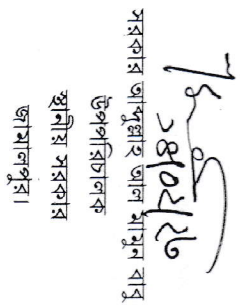 ১৪/০২/২৩
সরকার আব্দুল্লাহ আল মামুন বাবু
উপপরিচালক
স্থানীয় সরকার
জামালপুর।